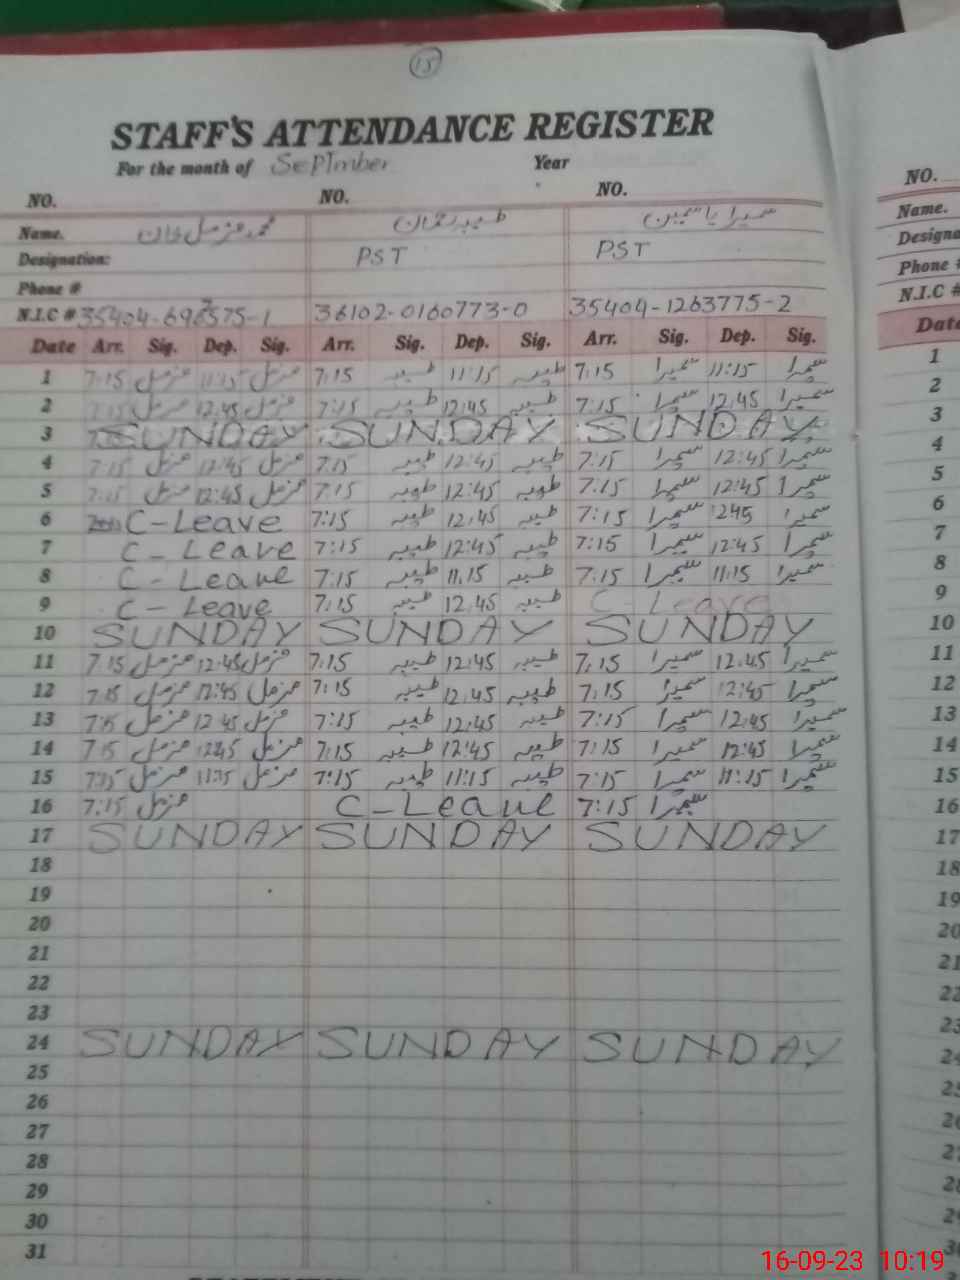 15
STAFF'S ATTENDANCE REGISTER
For the month of SepTmber Year
NO. NO. NO. NO.
Name. محمد مزمل خان طیبہ نعمان سمیرا یاسمین Name.
Designation: PST PST Designa
Phone # Phone #
N.I.C # 35404-6967575-1 36102-0160773-0 35404-1263775-2 N.I.C #
Date Arr. Sig. Dep. Sig. Arr. Sig. Dep. Sig. Arr. Sig. Dep. Sig. Date
1 7:15 مزمل 11:15 مزمل 7:15 طیبہ 11:15 طیبہ 7:15 سمیرا 11:15 سمیرا 1
2 7:15 مزمل 12:45 مزمل 7:15 طیبہ 12:45 طیبہ 7:15 سمیرا 12:45 سمیرا 2
3 SUNDAY SUNDAY SUNDAY 3
4 7:15 مزمل 12:45 مزمل 7:15 طیبہ 12:45 طیبہ 7:15 سمیرا 12:45 سمیرا 4
5 7:15 مزمل 12:45 مزمل 7:15 طیبہ 12:45 طیبہ 7:15 سمیرا 12:45 سمیرا 5
6 C-Leave 7:15 طیبہ 12:45 طیبہ 7:15 سمیرا 1245 سمیرا 6
7 C-Leave 7:15 طیبہ 12:45 طیبہ 7:15 سمیرا 12:45 سمیرا 7
8 C-Leave 7:15 طیبہ 11:15 طیبہ 7:15 سمیرا 11:15 سمیرا 8
9 C-Leave 7:15 طیبہ 12:45 طیبہ C-Leave 9
10 SUNDAY SUNDAY SUNDAY 10
11 7:15 مزمل 12:45 مزمل 7:15 طیبہ 12:45 طیبہ 7:15 سمیرا 12:45 سمیرا 11
12 7:15 مزمل 12:45 مزمل 7:15 طیبہ 12:45 طیبہ 7:15 سمیرا 12:45 سمیرا 12
13 7:15 مزمل 12:45 مزمل 7:15 طیبہ 12:45 طیبہ 7:15 سمیرا 12:45 سمیرا 13
14 7:15 مزمل 1245 مزمل 7:15 طیبہ 12:45 طیبہ 7:15 سمیرا 12:45 سمیرا 14
15 7:15 مزمل 11:15 مزمل 7:15 طیبہ 11:15 طیبہ 7:15 سمیرا 11:15 سمیرا 15
16 7:15 مزمل C-Leave 7:15 سمیرا 16
17 SUNDAY SUNDAY SUNDAY 17
18 18
19 19
20 20
21 21
22 22
23 23
24 SUNDAY SUNDAY SUNDAY 24
25 25
26 26
27 27
28 28
29 29
30 30
31
16-09-23 10:19